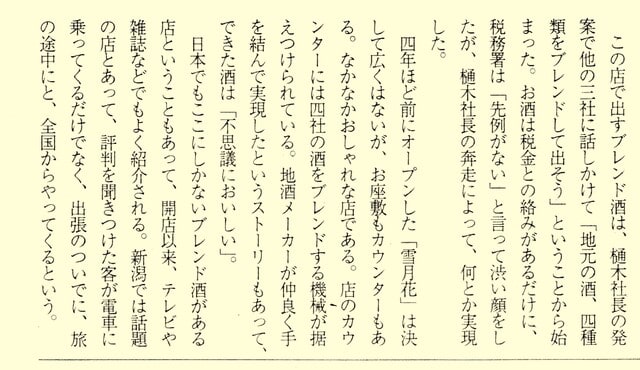 この店で出すブレンド酒は、樋木社長の発
案で他の三社に話しかけて「地元の酒、四種
類をブレンドして出そう」ということから始
まった。お酒は税金との絡みがあるだけに、
税務署は「先例がない」と言って渋い顔をし
たが、樋木社長の奔走によって、何とか実現
した。
四年ほど前にオープンした「雪月花」は決
して広くはないが、お座敷もカウンターもあ
る。なかなかおしゃれな店である。店のカウ
ンターには四社の酒をブレンドする機械が据
えつけられている。地酒メーカーが仲良く手
を結んで実現したというストーリーもあって、
できた酒は「不思議においしい」。
日本でもここにしかないブレンド酒がある
店ということもあって、開店以来、テレビや
雑誌などでもよく紹介される。新潟では話題
の店とあって、評判を聞きつけた客が電車に
乗ってくるだけでなく、出張のついでに、旅
の途中にと、全国からやってくるという。